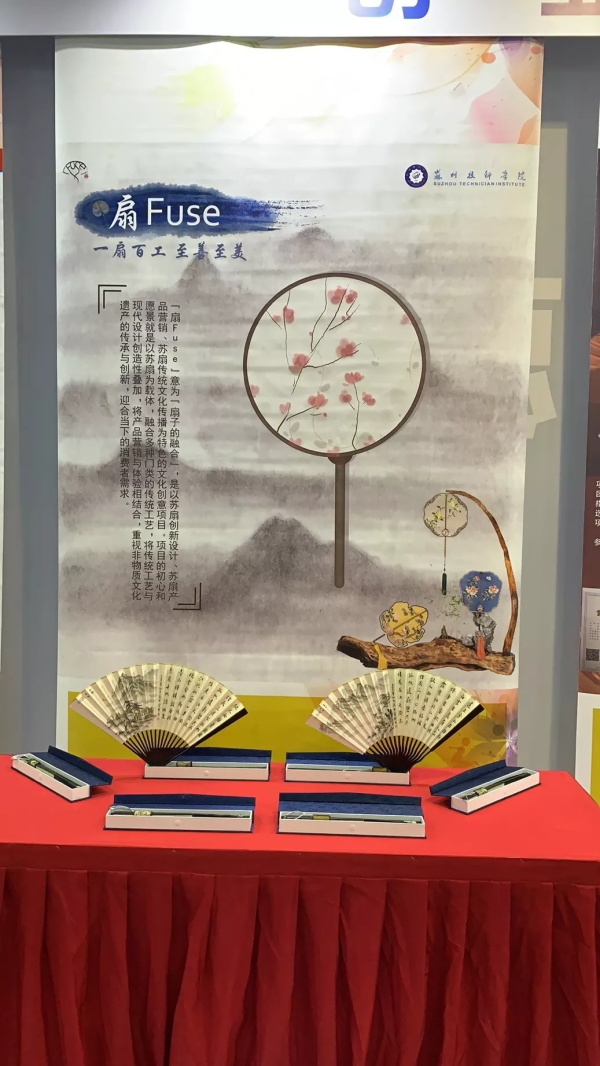 苏州技师学院
SUZHOU TECHNICIAN INSTITUTE
扇 Fuse
一扇百工 至善至美
「扇Fuse」意为「扇子的融合」，是以苏扇创新设计、苏扇产
品营销、苏扇传统文化传播为特色的文化创意项目。项目的初心和
愿景就是以苏扇为载体，融合多种门类的传统工艺，将传统工艺与
现代设计创造性叠加，将产品营销与体验相结合，重视非物质文化
遗产的传承与创新，迎合当下的消费者需求。